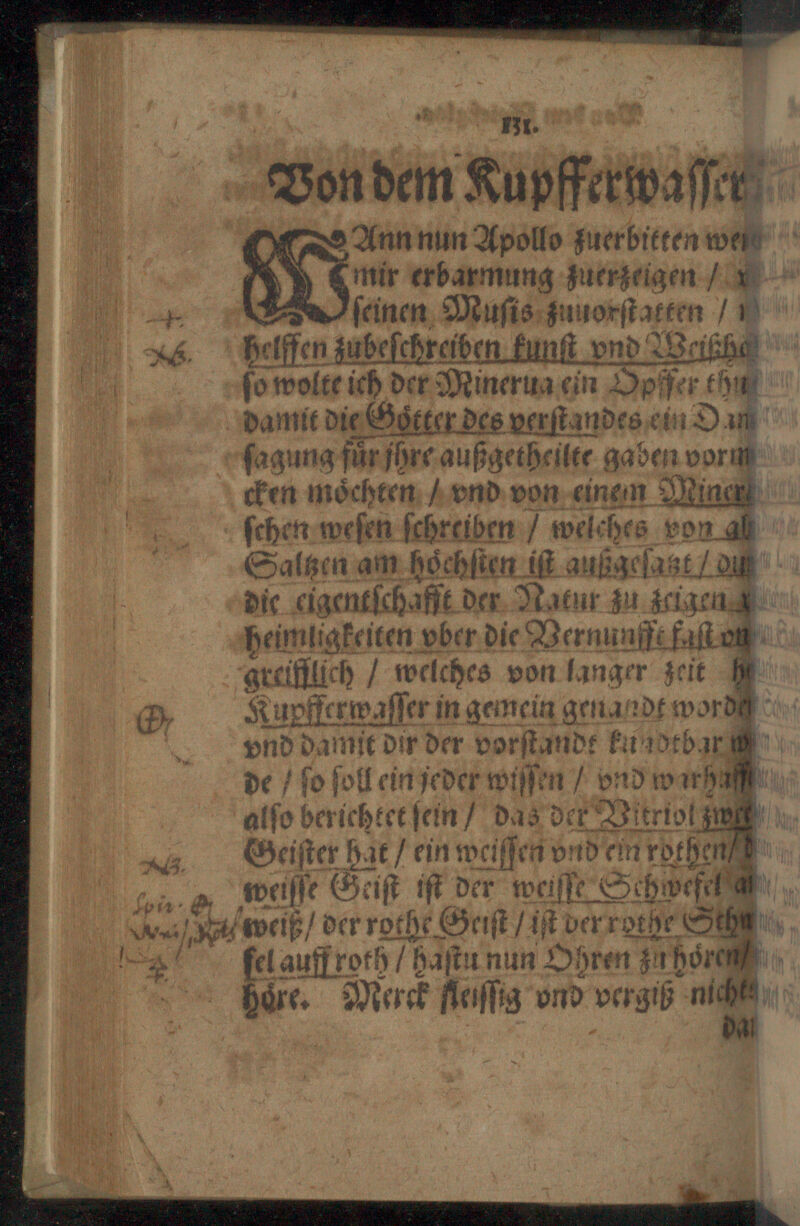 III.
Von dem Kupfferwaſſer
WAnn nun Apollo zuerbitten
mir erbarmung zuerzeigen /
ſeinen Muſis zuuorſtatten /
NB. helffen zubeſchreiben kunſt vnd
ſo wolte ich der Minerua ein Opffer
damit die Goͤtter des verſtandes ein
ſagung fuͤr jhre außgetheilte gaben
cken moͤchten / vnd von einem
ſchen weſen ſchreiben / welches von
Saltzen am hoͤchſten iſt außgeſagt /
die eigentſchafft der Natur zu zeigen
heimligkeiten vber die Vernunfft faſt
greifflich / welches von langer zeit
Kupfferwaſſer in gemein genandt
vnd damit dir der vorſtandt kundtbar
de / ſo ſoll ein jeder wiſſen / vnd
alſo berichtet ſein / das der Vitriol
NB. Geiſter hat / ein weiſſen vnd ein rothen /
weiſſe Geiſt iſt der weiſſe Schwefel
weiß / der rothe Geiſt / iſt der rothe
fel auff roth / haſtu nun Ohren zu hoͤren /
hoͤre. Merck fleiſſig vnd vergiß